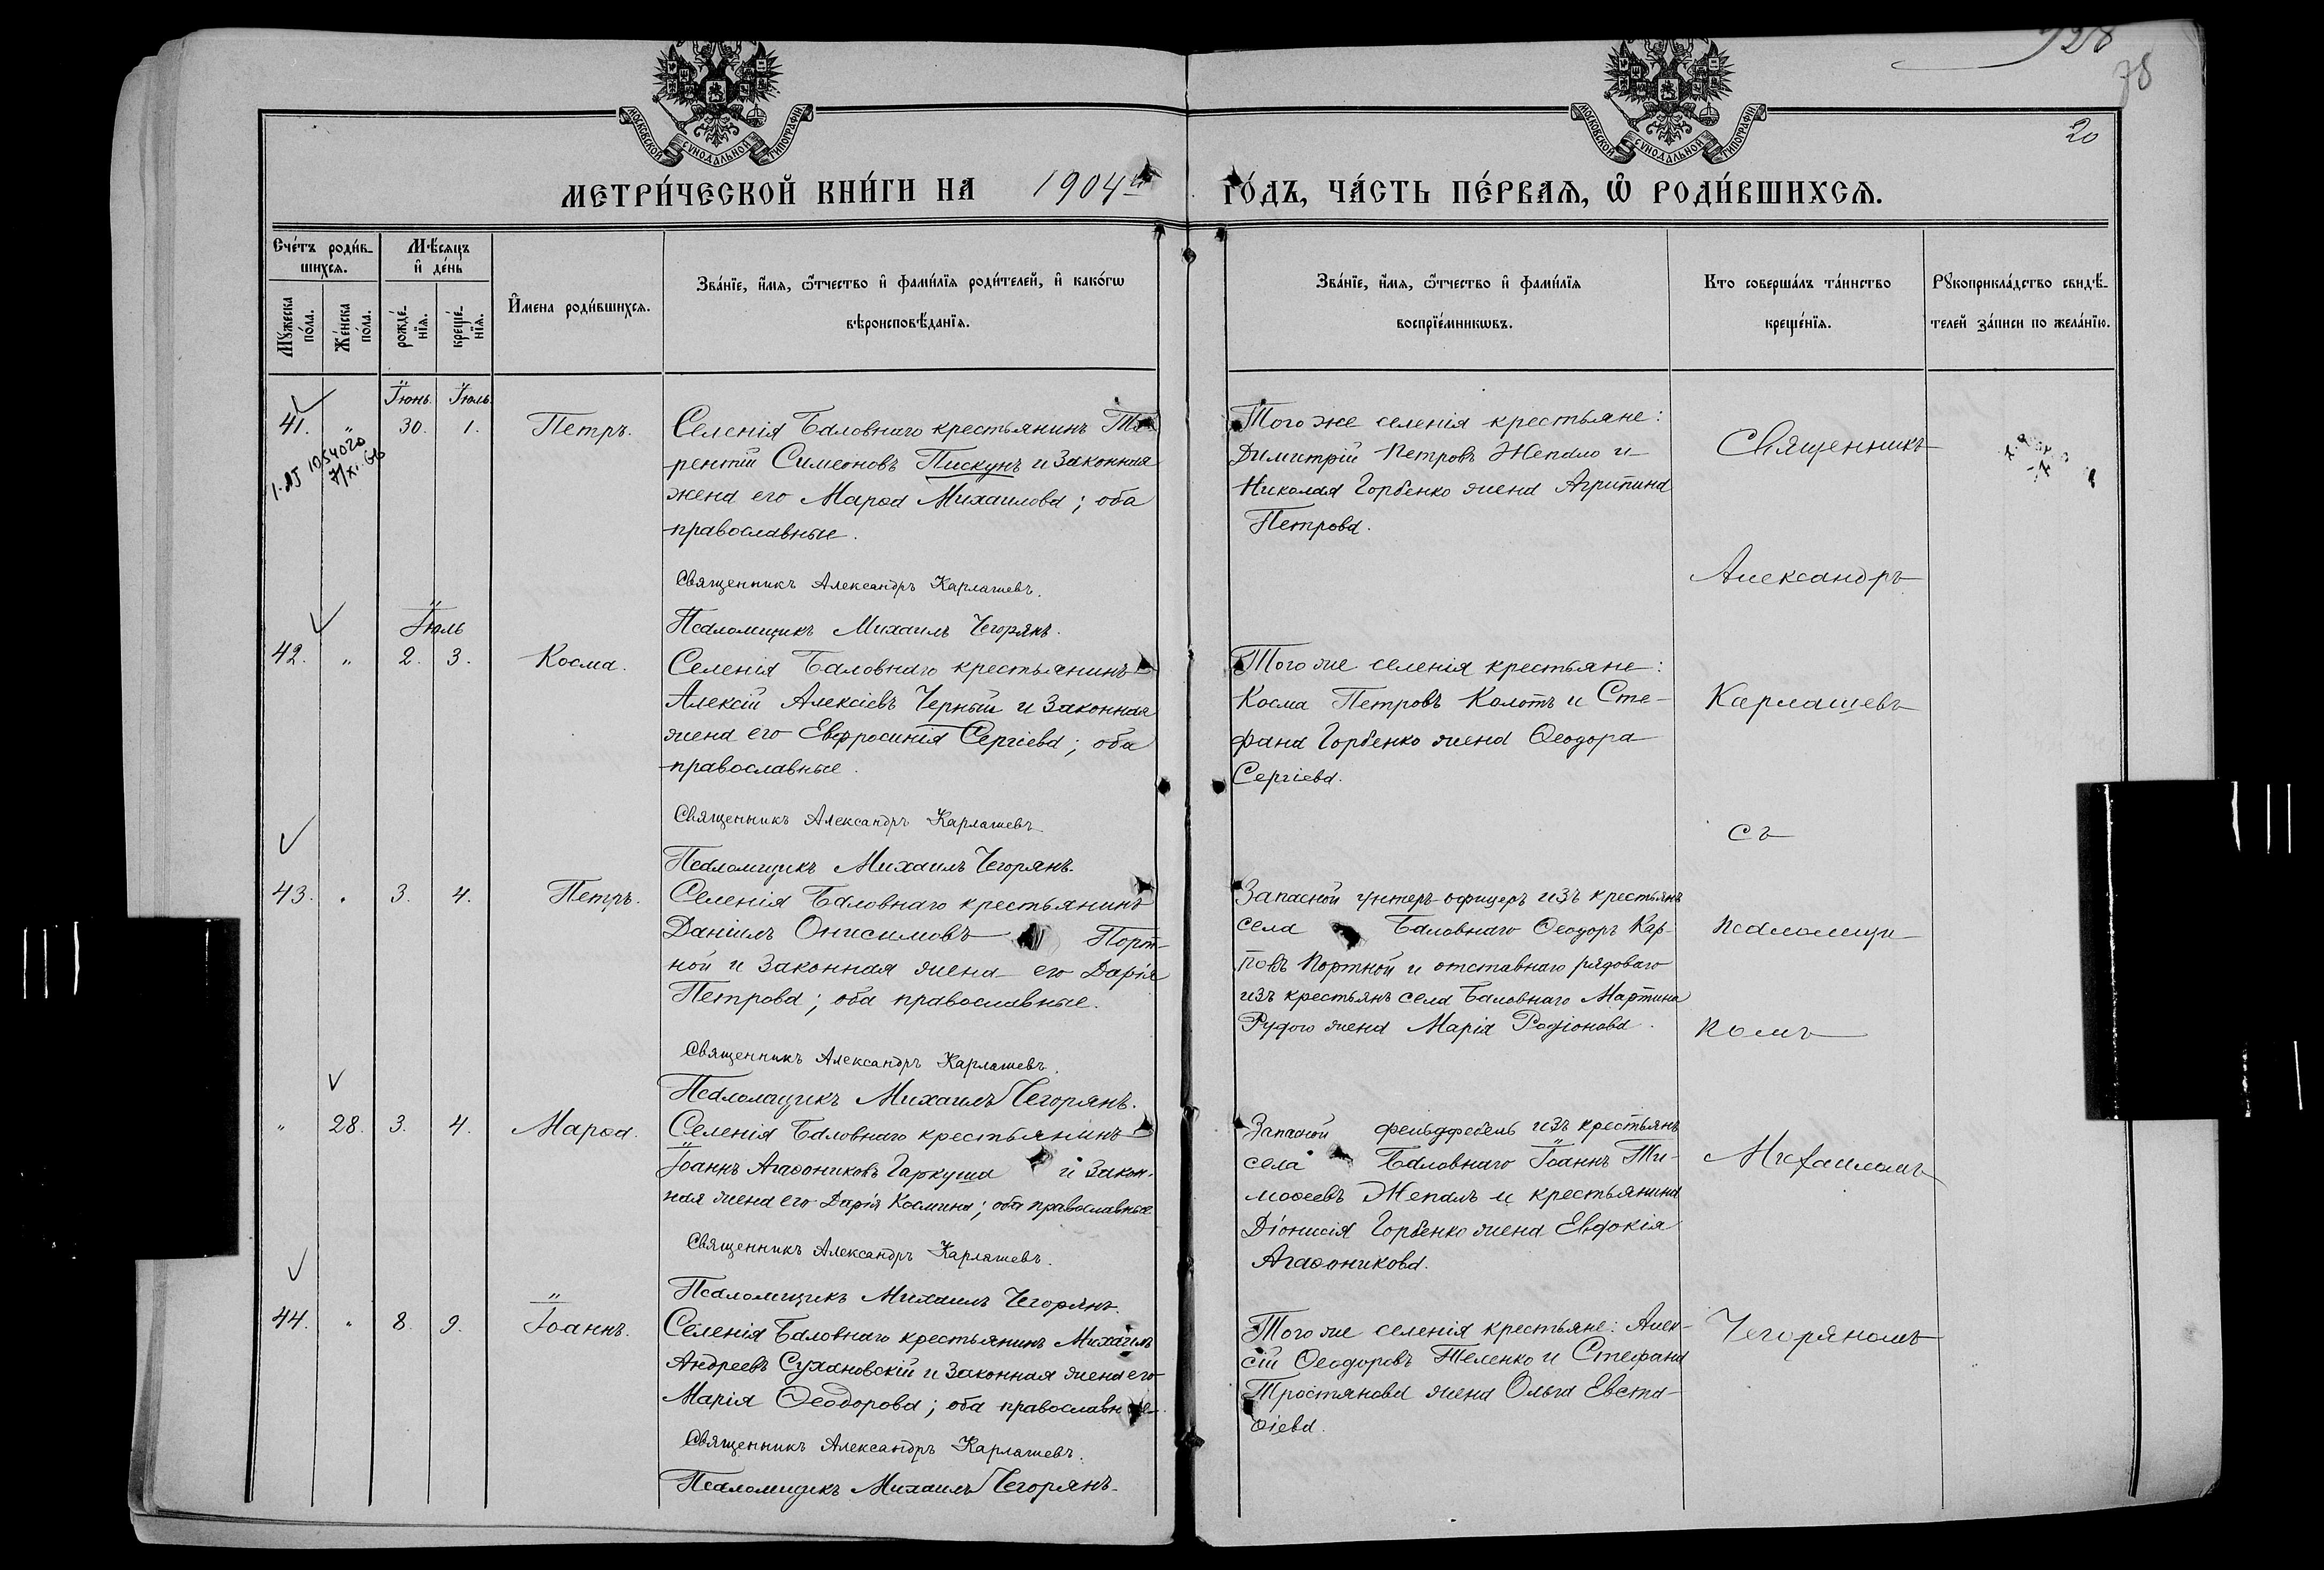 928
78
20
МОСКОВСКОЙ СѴНОДАЛЬНОЙ ТИПОГРАФІИ
МОСКОВСКОЙ СѴНОДАЛЬНОЙ ТИПОГРАФІИ
МЕТРИ́ЧЕСКОЙ КНИ́ГИ НА 1904й ГО́ДЪ, ЧА́СТЬ ПЕ́РВАѦ, Ѡ҆ РОДИ́ВШИХСѦ.
Сче́тъ роди́в-
шихсѧ.
Мꙋ́жеска по́ла.
Же́нска по́ла.
Мѣ́сѧцъ
и҆ де́нь
рожде́-
нїѧ.
креще́-
нїѧ.
И҆мена роди́вшихсѧ.
Зва́нїе, и҆́мѧ, ѻ҆́тчество и҆ фами́лїѧ роди́телей, и҆ како́гѡ
вѣроисповѣ́данїѧ.
Зва́нїе, и҆́мѧ, ѻ҆́тчество и҆ фами́лїѧ
воспрїе́мникѡвъ.
Кто соверша́лъ та́инство
креще́нїѧ.
Рꙋкоприкла́дство свидѣ́-
телей за́писи по жела́нїю.
Іюнь. Іюль.
41. " 30. 1. Петръ.
Селенія Баловнаго крестьянинъ Те-
рентій Симеоновъ Пискунъ и законная
жена его Марѳа Михаилова; оба
православные.
Священникъ Александръ Карлашевъ.
Псаломщикъ Михаилъ Чегорянъ.
Того же селенія крестьяне:
Димитрій Петровъ Жепало и
Николая Горбенко жена Агрипина
Петрова.
1054020
7/XI
Іюль
42. " 2. 3. Косма.
Селенія Баловнаго крестьянинъ
Алексій Алексіевъ Черный и законная
жена его Евфросинія Сергіева; оба
православные.
Священникъ Александръ Карлашевъ
Псаломщикъ Михаилъ Чегорянъ.
Того же селенія крестьяне:
Косма Петровъ Колотъ и Сте-
фана Горбенко жена Ѳеодора
Сергіева.
43. " 3. 4. Петръ.
Селенія Баловнаго крестьянинъ
Даніилъ Онисимовъ Порт-
ной и законная жена его Дарія
Петрова; оба православные.
Священникъ Александръ Карлашевъ.
Псаломщикъ Михаилъ Чегорянъ.
Запасной унтеръ-офицеръ изъ крестьянъ
села Баловнаго Ѳеодоръ Кар-
повъ Портной и отставнаго рядоваго
изъ крестьянъ села Баловнаго Мартина
Рудого жена Марія Родіонова.
" 28. 3. 4. Марѳа.
Селенія Баловнаго крестьянинъ
Іоаннъ Агаѳониковъ Гаркуша и закон-
ная жена его Дарія Космина; оба православные
Священникъ Александръ Карлашевъ.
Псаломщикъ Михаилъ Чегорянъ.
Запасной фельдфебель изъ крестьянъ
села Баловнаго Іоаннъ Ти-
моѳеевъ Жепалъ и крестьянина
Діонисія Горбенко жена Евдокія
Агаѳоникова.
44. " 8. 9. Іоаннъ.
Селенія Баловнаго крестьянинъ Михаилъ
Андреевъ Сухановскій и законная жена его
Марія Ѳеодорова; оба православные
Священникъ Александръ Карлашевъ.
Псаломщикъ Михаилъ Чегорянъ.
Того же селенія крестьяне: Алек-
сій Ѳеодоровъ Теленко и Стефана
Тростянова жена Ольга Евста-
ѳіева.
Священникъ
Александръ
Карлашевъ
съ
псаломщи-
комъ
Михаиломъ
Чегоряномъ